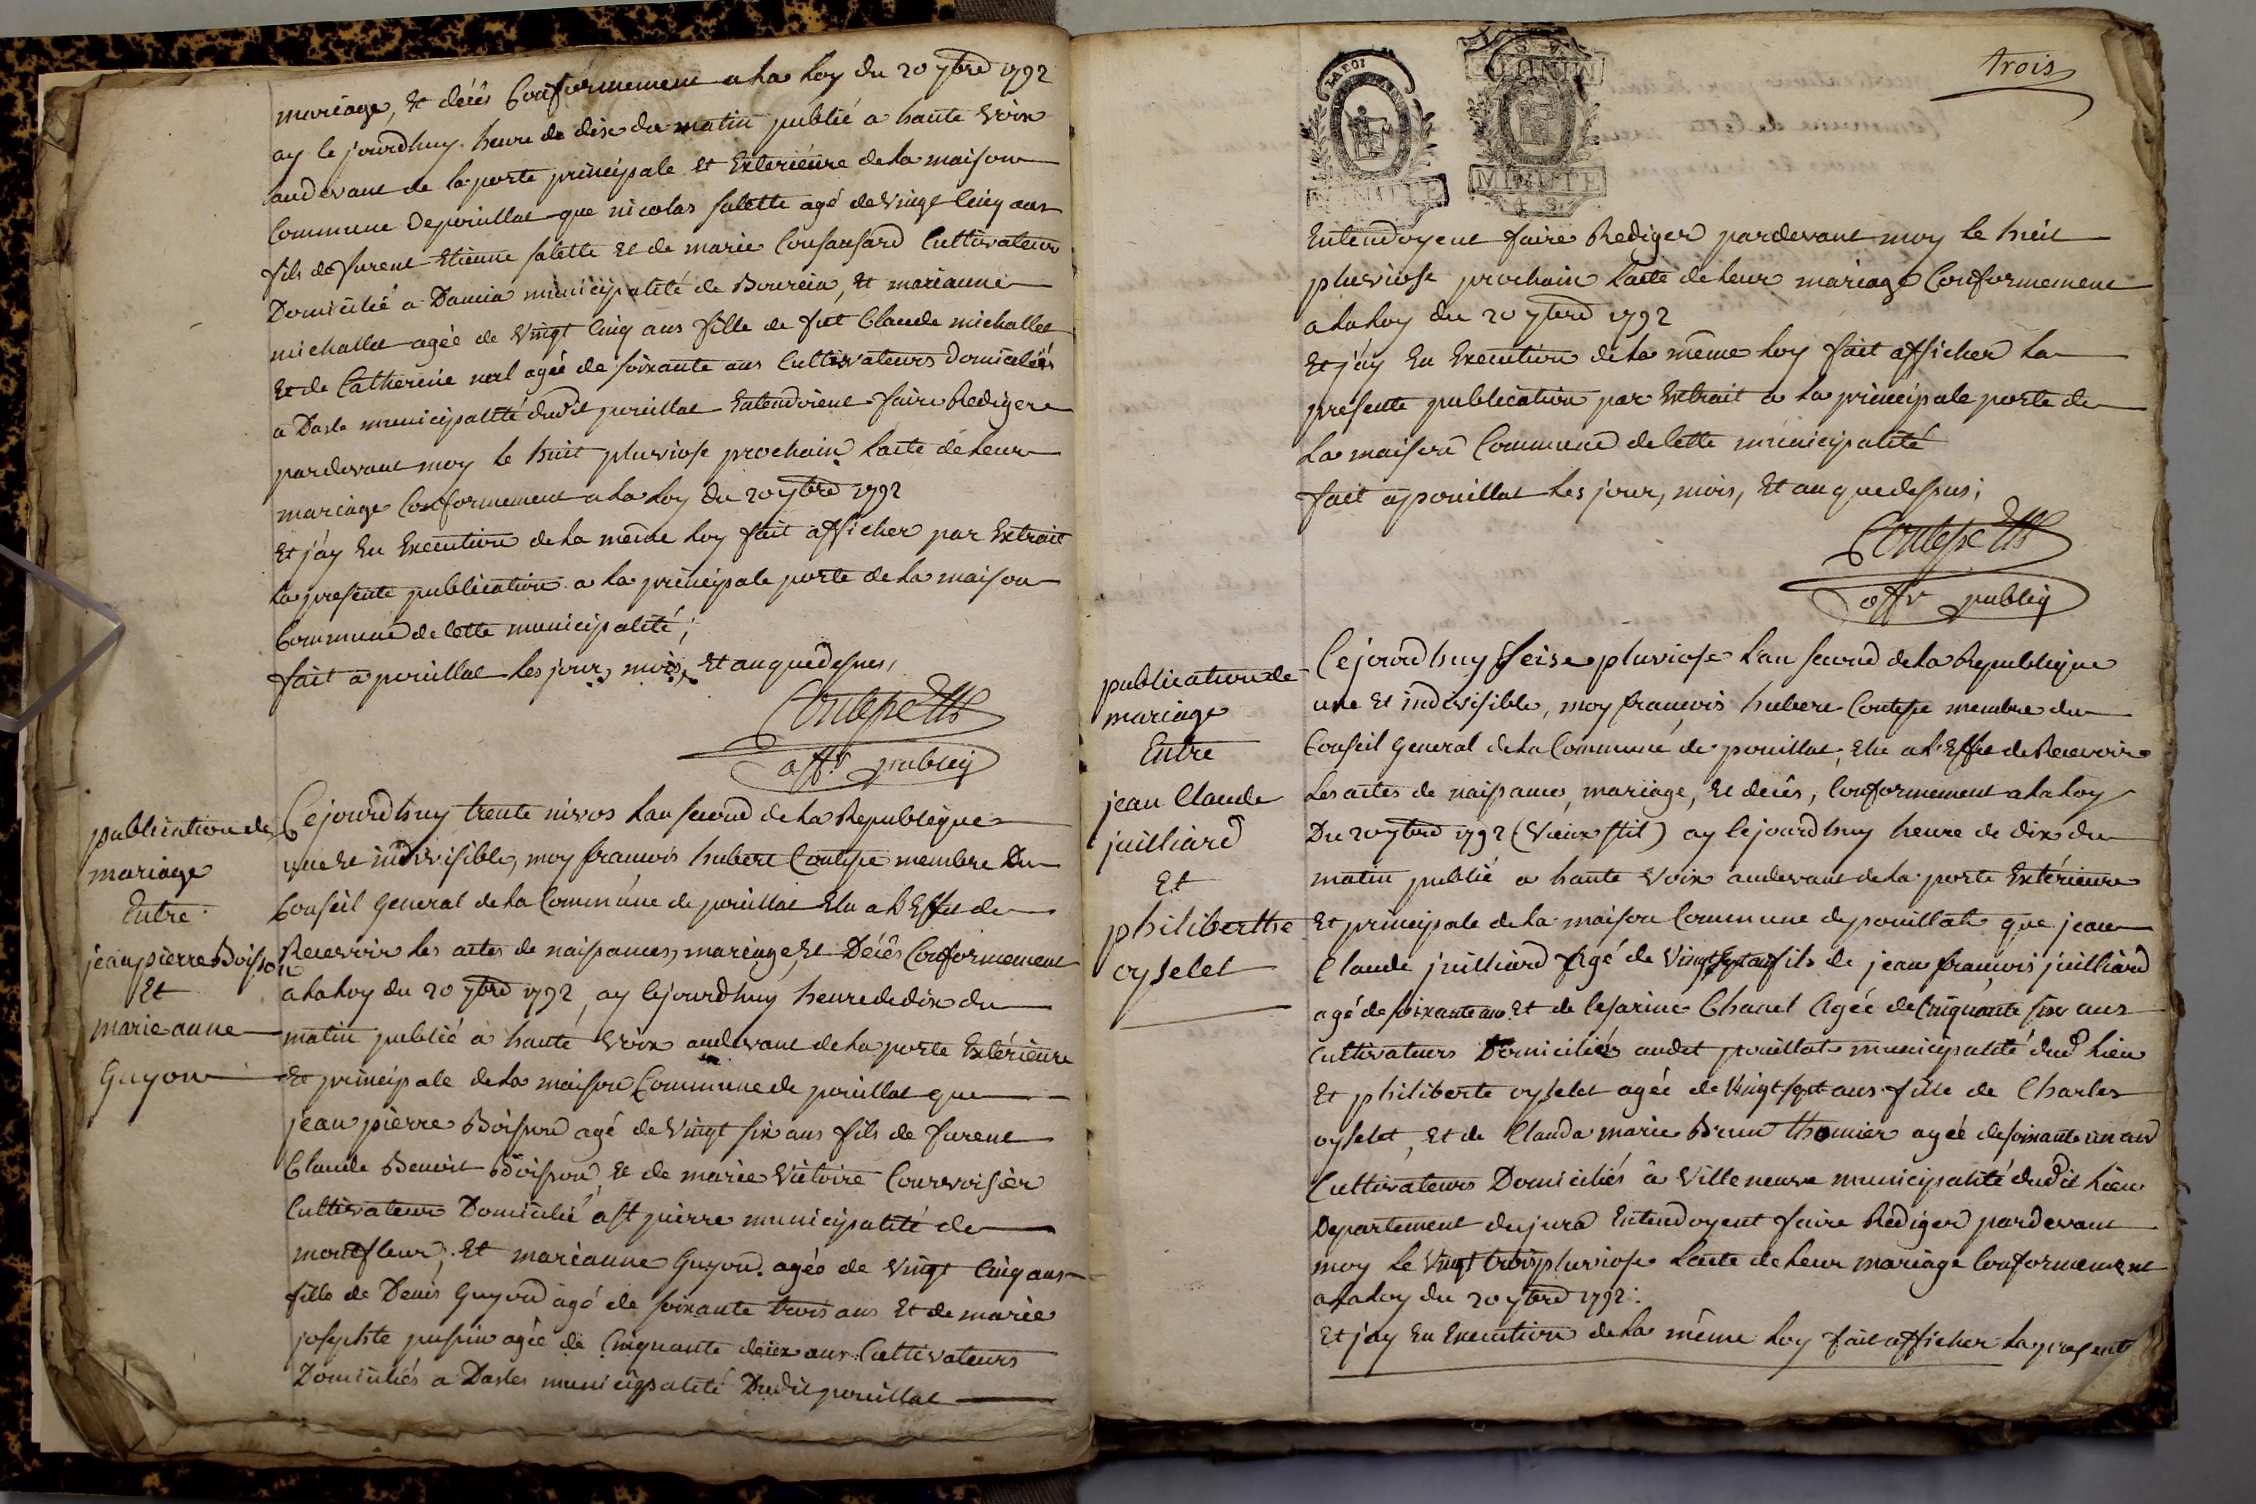 mariage, Et décés Conformement a La Loy du 20 7bre 1792
ay ce jourdhuy heure de dix du matin publié a haute voix
audevant de la porte principale Et Exterieure de La maison
Commune de pouillat que nicolas salette agé de vingt Cinq ans
fils de furent Etienne salette Et de marie Consansard Cultivateur
Domicilié a Damia municipalité de Bourcia, Et marianne
michallet agée de vingt Cinq ans fille de fut Claude michallet
Et de Catherine agée de soixante ans Cultivateurs Domiciliés
a Dasle municipalité dudit pouillat Entendoient faire Rediger
pardevant moy le huit pluviose prochain Lacte de Leur
mariage Conformement a La Loy du 20 7bre 1792
Et j'ay En Execution de La même Loy fait afficher par Extrait
La presente publication a La principale porte de La maison
Commune de Cette municipalité;
fait a pouillat Les jour, mois, Et an que dessus,
Contepe
offr public
publication de
mariage
Entre
jean pierre Boisson
Et
marie anne
Guyon
Cejourdhuy trente nivos Lan second de La Republique
une Et indivisible, moy francois hubert Contepe membre Du
Conseil General de La Commune de pouillat Elu a L'Effet de
Recevoir Les actes de naissances, mariage, Et Décés Conformement
a La Loy du 20 7bre 1792, ay cejourdhuy heure de dix du
matin publié a haute voix audevant de La porte Extérieure
Et principale de La maison Commune de pouillat que
jean pierre Boisson agé de vingt six ans fils de furent
Claude Benoit Boisson, Et de marie victoire Courvoisier
Cultivateur Domicilié a St pierre municipalité de
montfleur; Et marianne Guyon agée de vingt Cinq ans
fille de Denis Guyon agé de soixante trois ans Et de marie
josephte pusin agée de Cinquante deux ans Cultivateurs
Domiciliés a Dasles municipalité Dudit pouillat
trois
LA LOI
MINUTE
MINUTE
4 S.
Entendoyent faire Rediger pardevant moy le huit
pluviose prochain Lacte de Leur mariage Conformement
a La Loy du 20 7bre 1792
Et j'ay En Execution de La même Loy fait afficher La
presente publication par Extrait a La principale porte de
La maison Commune de Cette municipalité
fait a pouillat Les jour, mois, Et an que dessus;
Contepe
offr public
publication de
mariage
Entre
jean Claude
juilliard
Et
philiberthe
oyselet
Cejourdhuy seise pluviose Lan second de La Republique
une Et indivisible, moy francois hubert Contepe membre du
Conseil General de La Commune de pouillat, Elu a L'Effet de Recevoir
Les actes de naissances, mariage, Et décés, Conformement a La Loy
Du 20 7bre 1792 (vieux stil) ay cejourdhuy heure de dix du
matin publié a haute voix audevant de La porte Extérieure
Et principale de La maison Commune de pouillat que jean
Claude juilliard Agé de vingt sept ans fils de jean francois juilliard
agé de soixante ans Et de Cesarine Chanel Agée de Cinquante six ans
Cultivateurs Domiciliés audit pouillat municipalité dud lieu
Et philiberte oyselet agée de vingt sept ans fille de Charles
oyselet, Et de Clauda marie Brun thomier agée de soixante un an
Cultivateurs Domiciliés a Villeneuve municipalité dudit Lieu
Departement du jura Entendoyent faire Rediger pardevant
moy le vingt trois pluviose Lacte de Leur mariage Conformement
a La Loy du 20 7bre 1792.
Et j'ay En Execution de La même Loy fait afficher La present